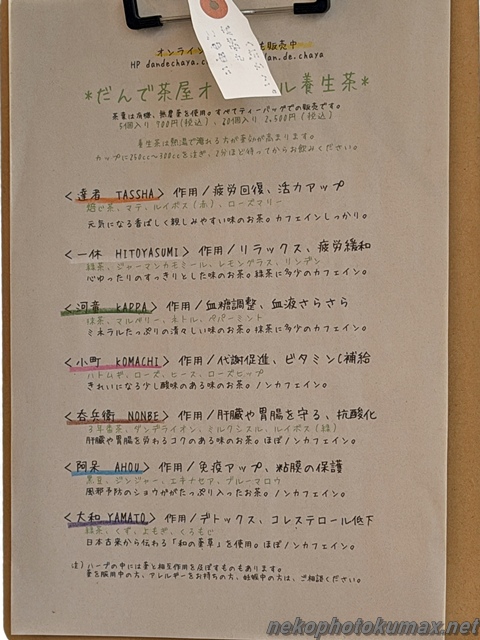 オンライン も販売中
HP dandechaya.c an.de.chaya
*だんで茶屋オ ル養生茶*
茶葉は有機、無農薬を使用。すべてティーバッグでの販売です。
5個入り 700円(税込)、20個入り 2,500円(税込)
養生茶は熱湯で淹れる方が薬効が高まります。
カップに250cc〜300ccを注ぎ、2分ほど待ってからお飲みください。
<達者 TASSHA> 作用/疲労回復、活力アップ
焙じ茶、マテ、ルイボス(赤)、ローズマリー
元気になる香ばしく親しみやすい味のお茶。カフェインしっかり。
<一休 HITOYASUMI> 作用/リラックス、疲労緩和
緑茶、ジャーマンカモミール、レモングラス、リンデン
心ゆったりのすっきりとした味のお茶。緑茶に多少のカフェイン。
<河童 KAPPA> 作用/血糖調整、血液さらさら
抹茶、マルベリー、ネトル、ペパーミント
ミネラルたっぷりの清々しい味のお茶。抹茶に多少のカフェイン。
<小町 KOMACHI> 作用/代謝促進、ビタミンC補給
ハトムギ、ローズ、ヒース、ローズヒップ
きれいになる少し酸味のある味のお茶。ノンカフェイン。
<呑兵衛 NONBE> 作用/肝臓や胃腸を守る、抗酸化
3年番茶、ダンデライオン、ミルクシスル、ルイボス(緑)
肝臓や胃腸を労わるコクのある味のお茶。ほぼノンカフェイン。
<阿呆 AHOU> 作用/免疫アップ、粘膜の保護
黒豆、ジンジャー、エキナセア、ブルーマロウ
風邪予防のショウガがたっぷり入ったお茶。ノンカフェイン。
<大和 YAMATO> 作用/デトックス、コレステロール低下
緑茶、くず、よもぎ、くろもじ
日本古来から伝わる「和の薬草」を使用。ほぼノンカフェイン。
注)ハーブの中には薬と相互作用を及ぼすものもあります。
薬を服用中の方、アレルギーをお持ちの方、妊娠中の方は、ご相談ください。
nekophotokumax.net